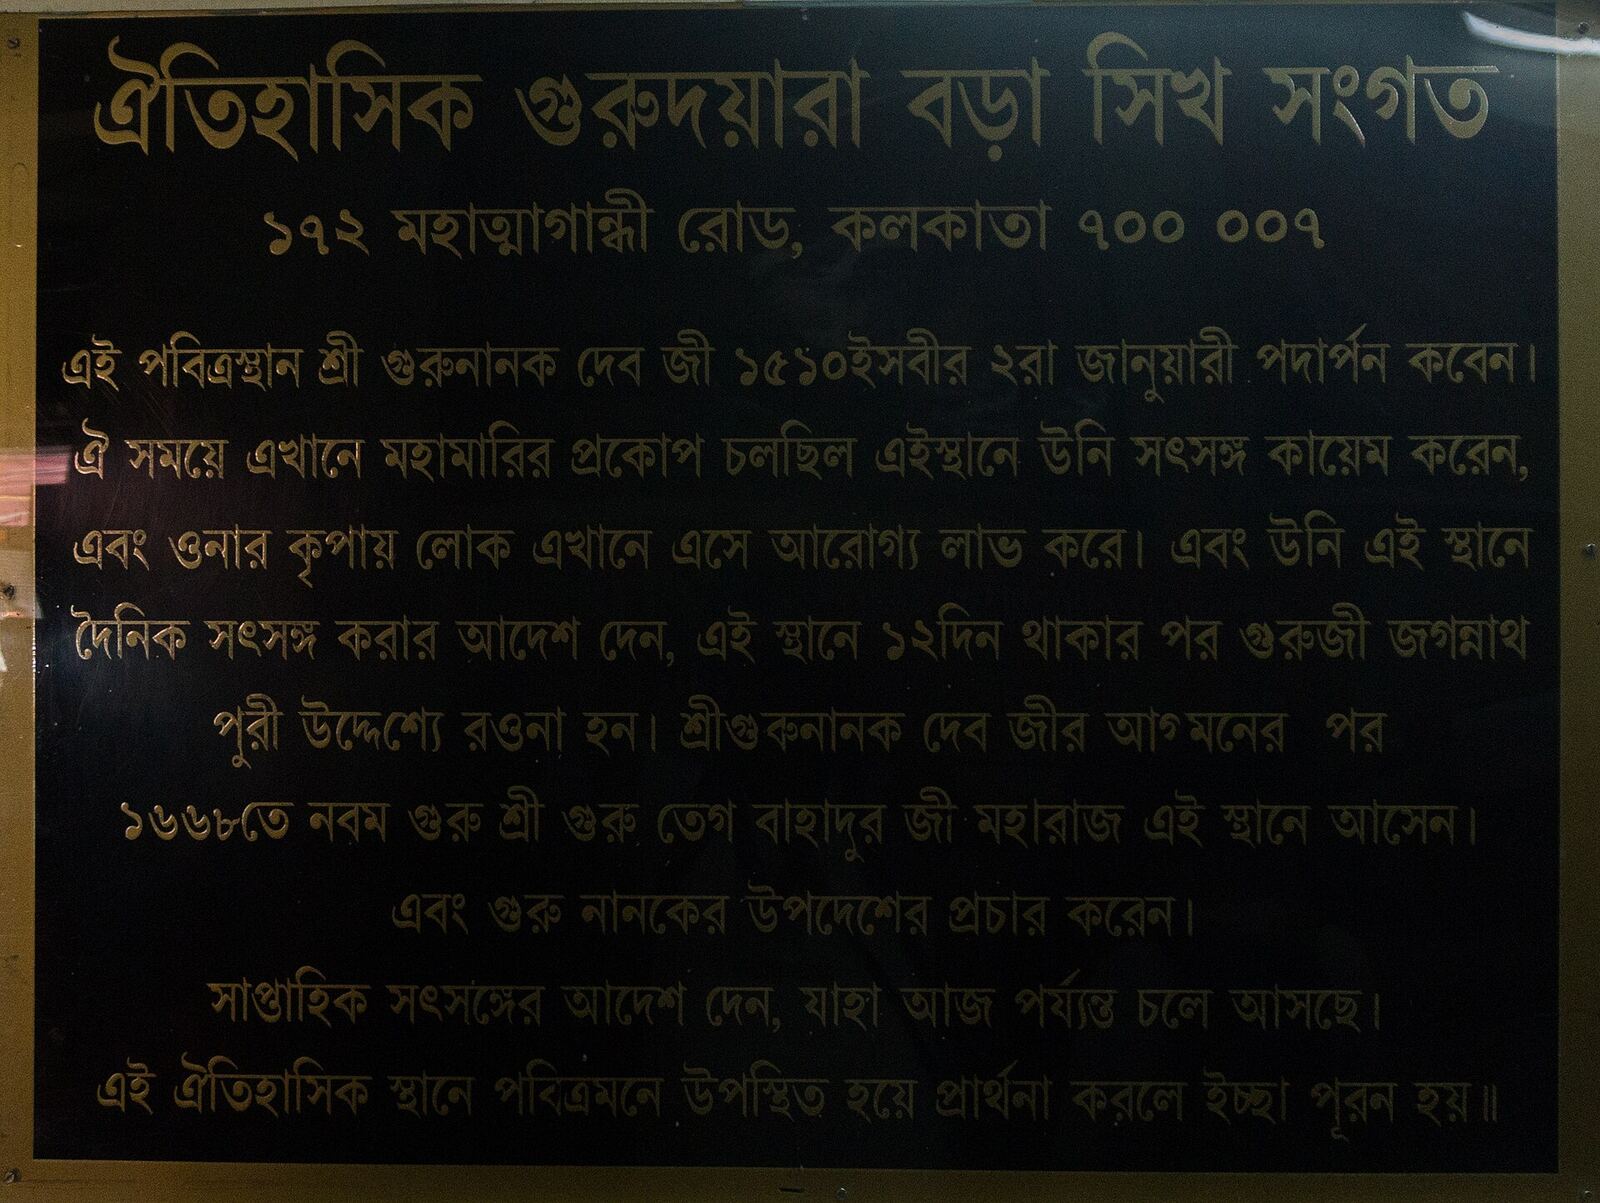 ঐতিহাসিক গুরুদয়ারা বড়া সিখ সংগত
১৭২ মহাত্মাগান্ধী রোড, কলকাতা ৭০০ ০০৭
এই পবিত্রস্থান শ্রী গুরুনানক দেব জী ১৫১০ইসবীর ২রা জানুয়ারী পদার্পন কবেন।
ঐ সময়ে এখানে মহামারির প্রকোপ চলছিল এইস্থানে উনি সৎসঙ্গ কায়েম করেন,
এবং ওনার কৃপায় লোক এখানে এসে আরোগ্য লাভ করে। এবং উনি এই স্থানে
দৈনিক সৎসঙ্গ করার আদেশ দেন, এই স্থানে ১২দিন থাকার পর গুরুজী জগন্নাথ
পুরী উদ্দেশ্যে রওনা হন। শ্রীগুরুনানক দেব জীর আগমনের পর
১৬৬৮তে নবম গুরু শ্রী গুরু তেগ বাহাদুর জী মহারাজ এই স্থানে আসেন।
এবং গুরু নানকের উপদেশের প্রচার করেন।
সাপ্তাহিক সৎসঙ্গের আদেশ দেন, যাহা আজ পর্য্যন্ত চলে আসছে।
এই ঐতিহাসিক স্থানে পবিত্রমনে উপস্থিত হয়ে প্রার্থনা করলে ইচ্ছা পূরন হয়॥